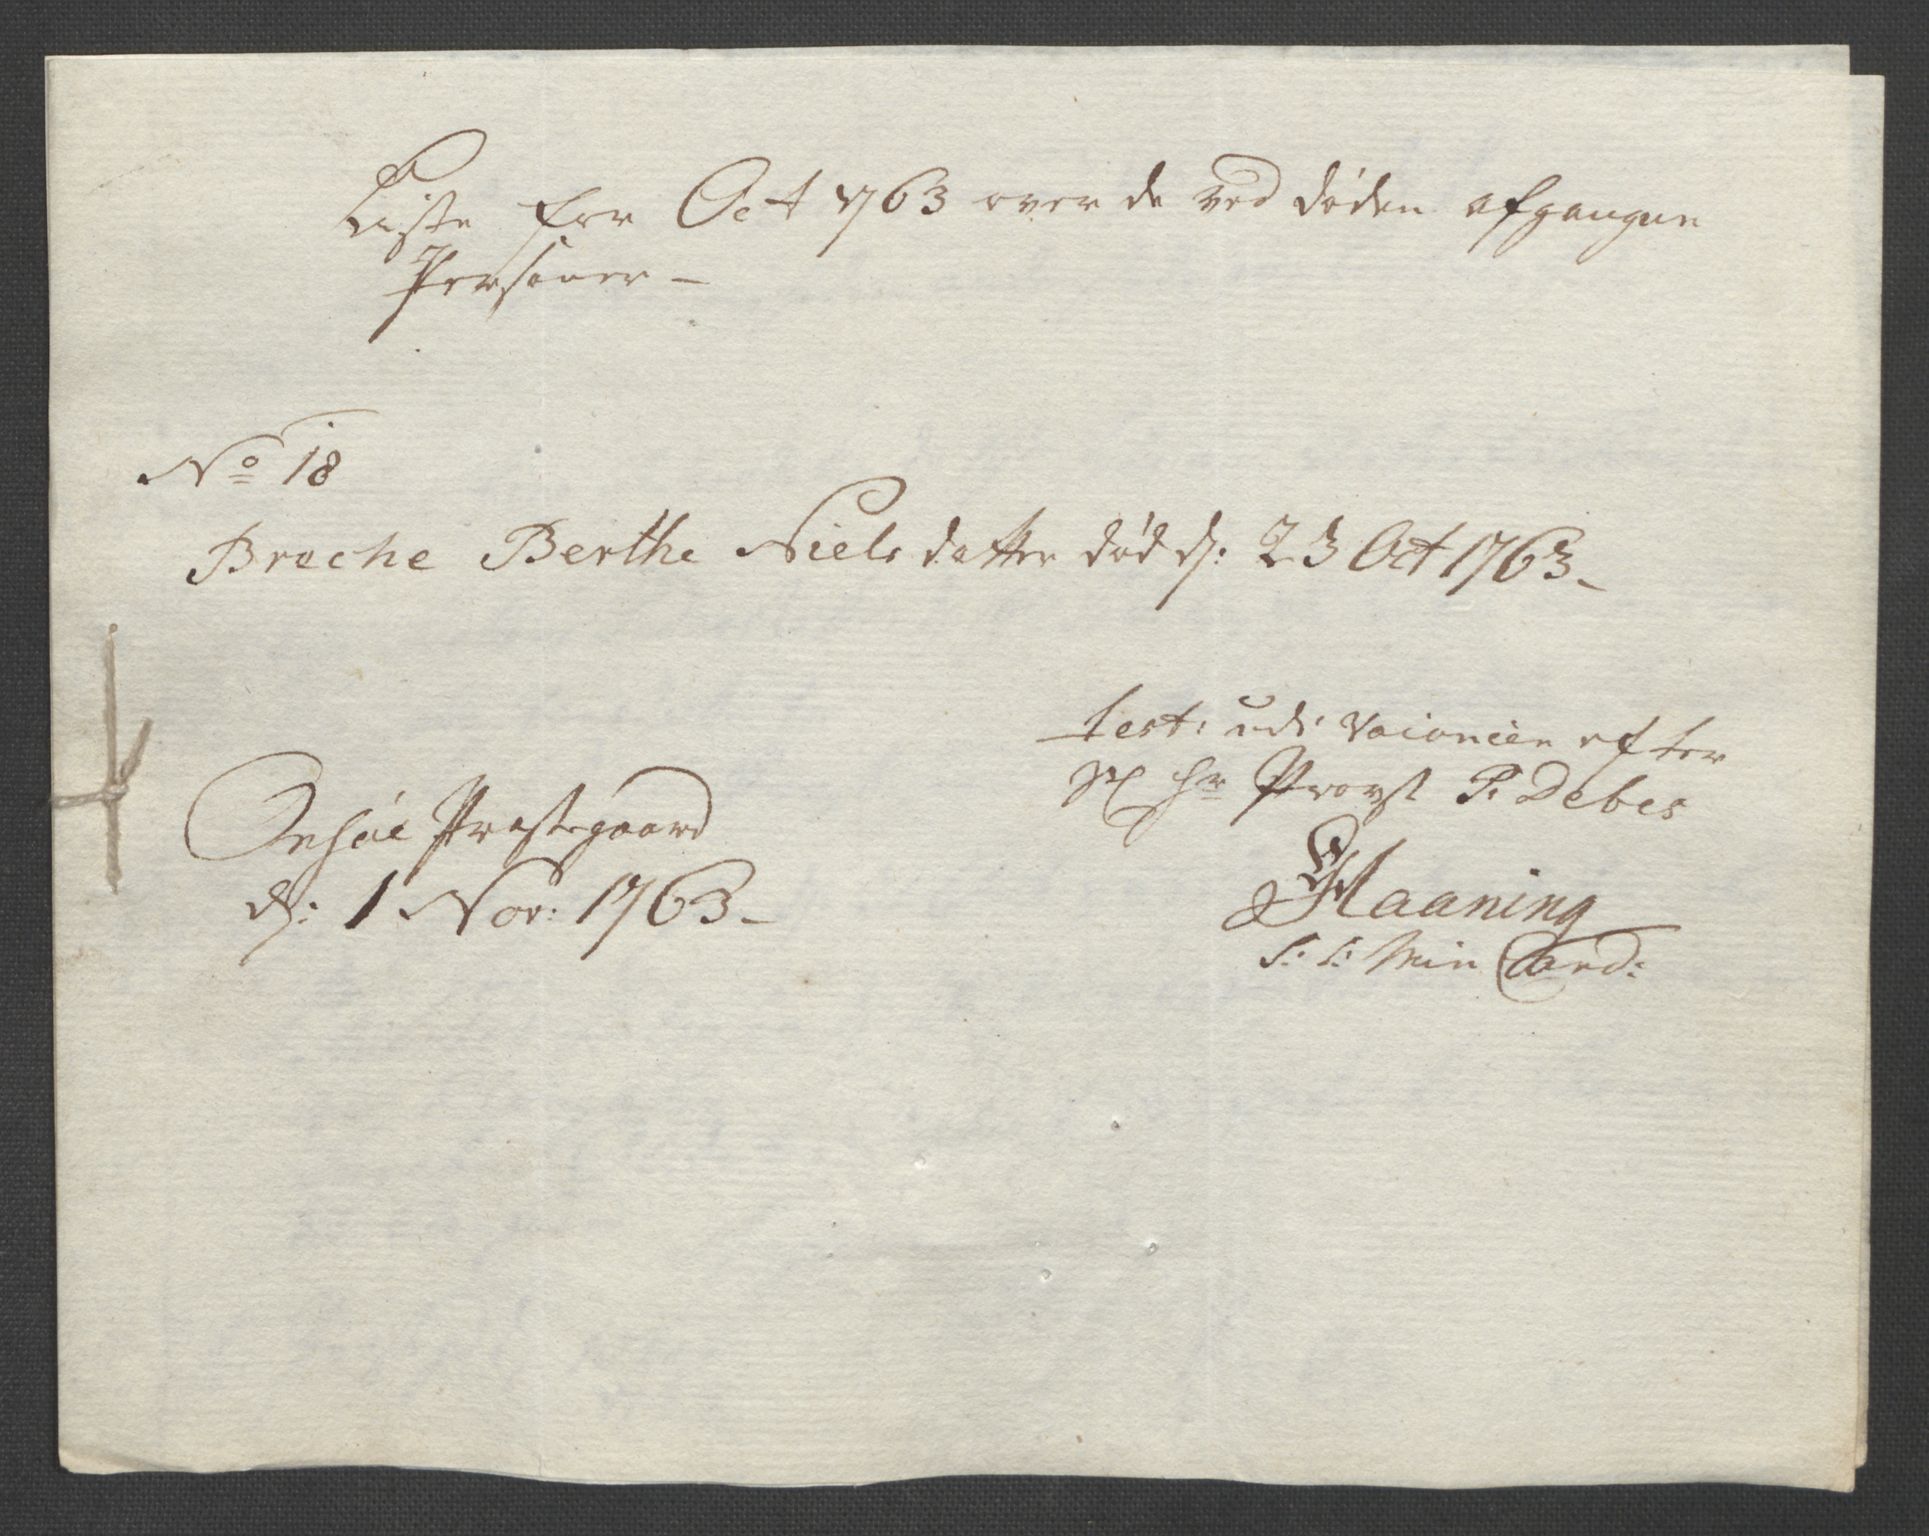 Liste for Oct 1763 over de ved døden afgangne
Personer –
No 18
Broche Berthe Nielsdatter død d: 23 Oct 1763 –
test: udi Vacancien efter
Sl Hr Provst P. Debes
Haaning
S: S: Min Cand:
Onsøe Præstegaard
d: 1 Nov: 1763 –